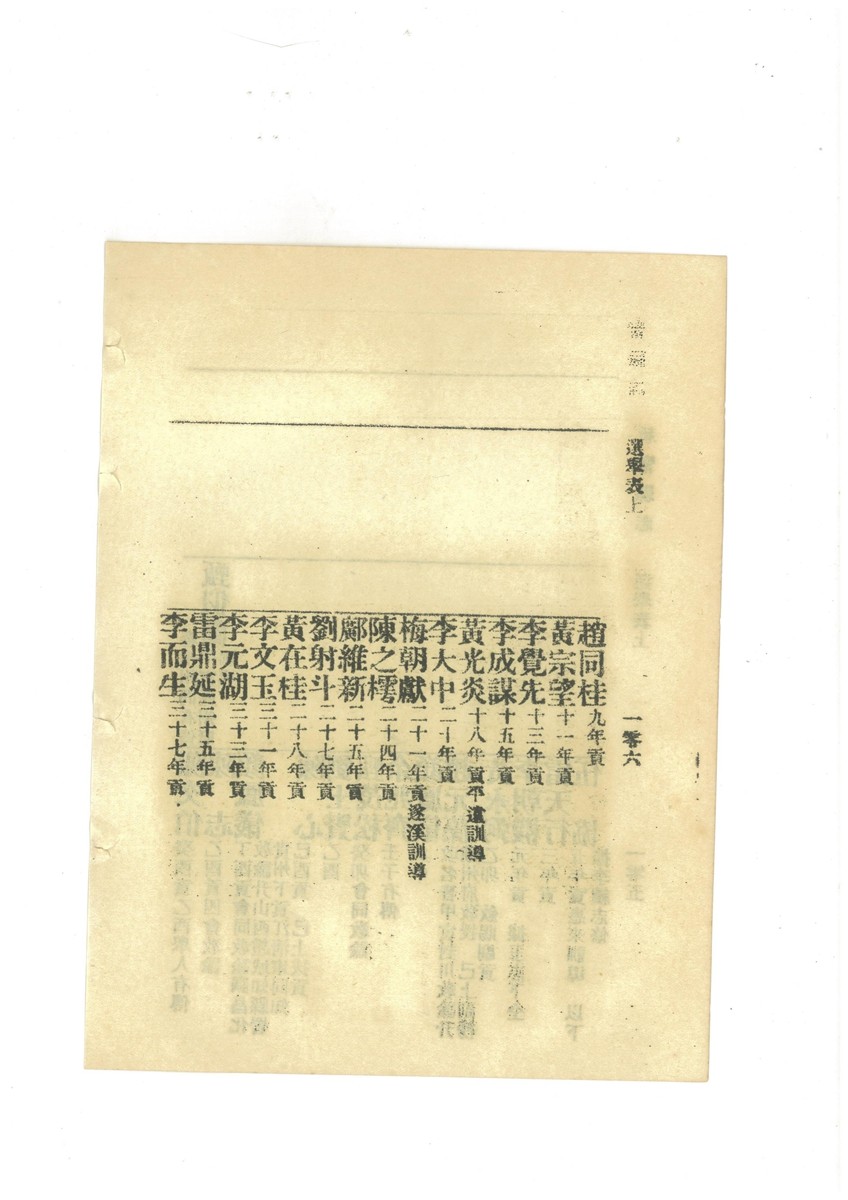 選舉表上
一零六
趙同桂九年貢
黃宗望十一年貢
李覺先十三年貢
李成謀十五年貢
黃光炎十八年貢平遠訓導
李大中二十年貢
梅朝獻二十一年貢遂溪訓導
陳之樗二十四年貢
鄺維新二十五年貢
劉射斗二十七年貢
黃在桂二十八年貢
李文玉三十一年貢
李元湖三十三年貢
雷鼎延三十五年貢
李而生三十七年貢